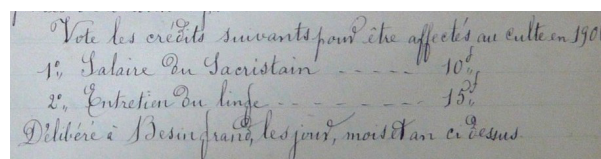 Vote les crédits suivants pour être affectés au culte en 190
1º,, Salaire du Sacristain ----- 10f,,
2º,, Entretien du linge -------- 15f,,
Délibéré à Besingrand, les jour, mois et an ci dessus.